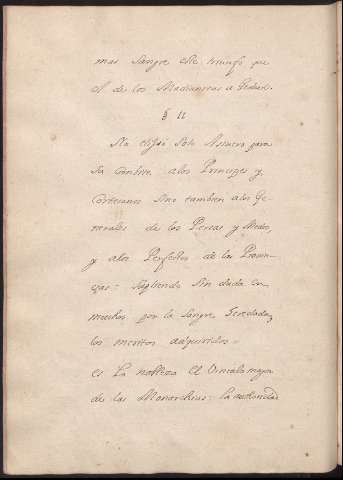 mas Sangre este triunfo que
el de los Madianitas a Gedeon.
§ 11
No elijió Solo Assuero para
su Combite a los Principes y
Cortesanos Sino tambien a los Ge-
nerales de los Persas y Medos,
y a los Perfectos de las Provin-
çias: Supliendo Sin duda en
muchos por la Sangre heredada,
los meritos adquiridos.
es La nobleza el Vinculo mayor
de las Monarchias: la authoridad